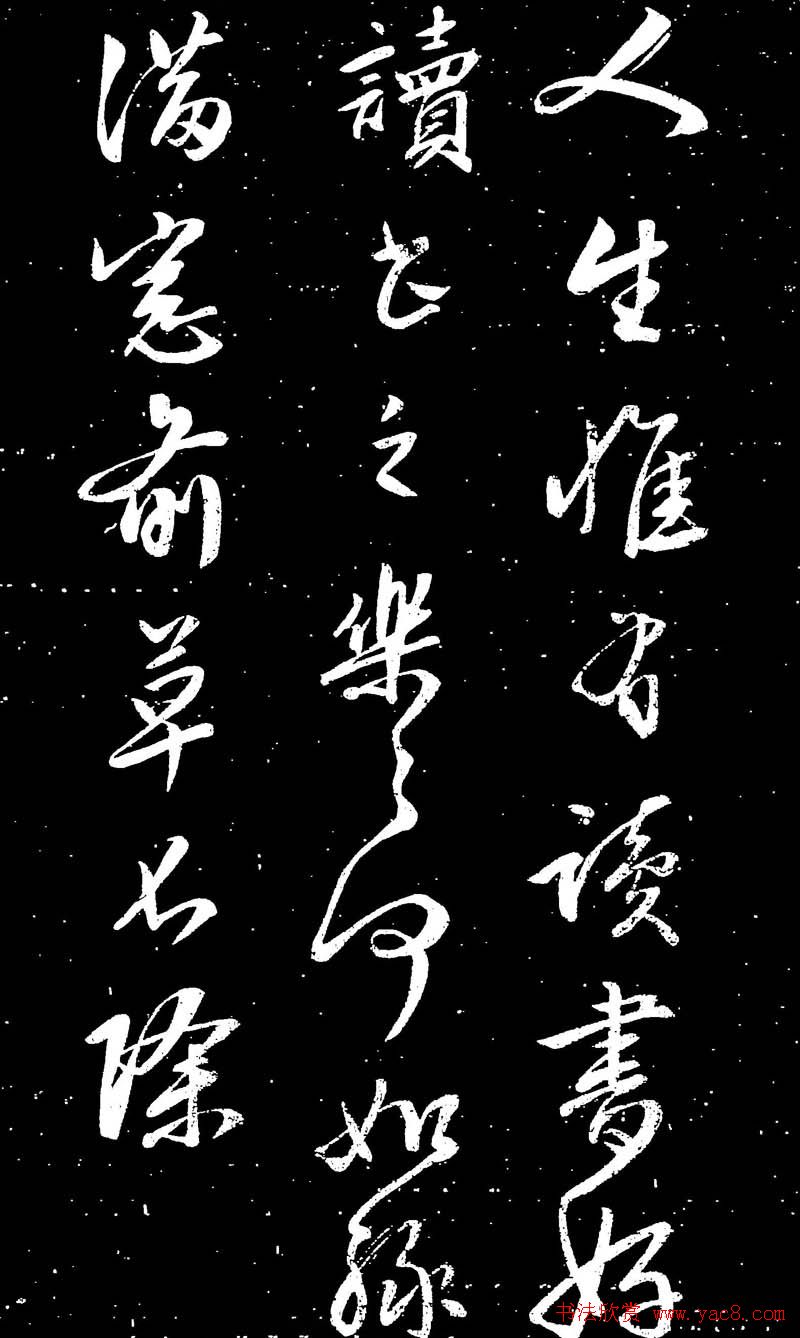 人生惟有讀書好
讀书之樂樂何如綠
滿窓前草不除
书法欣赏 www.yac8.com